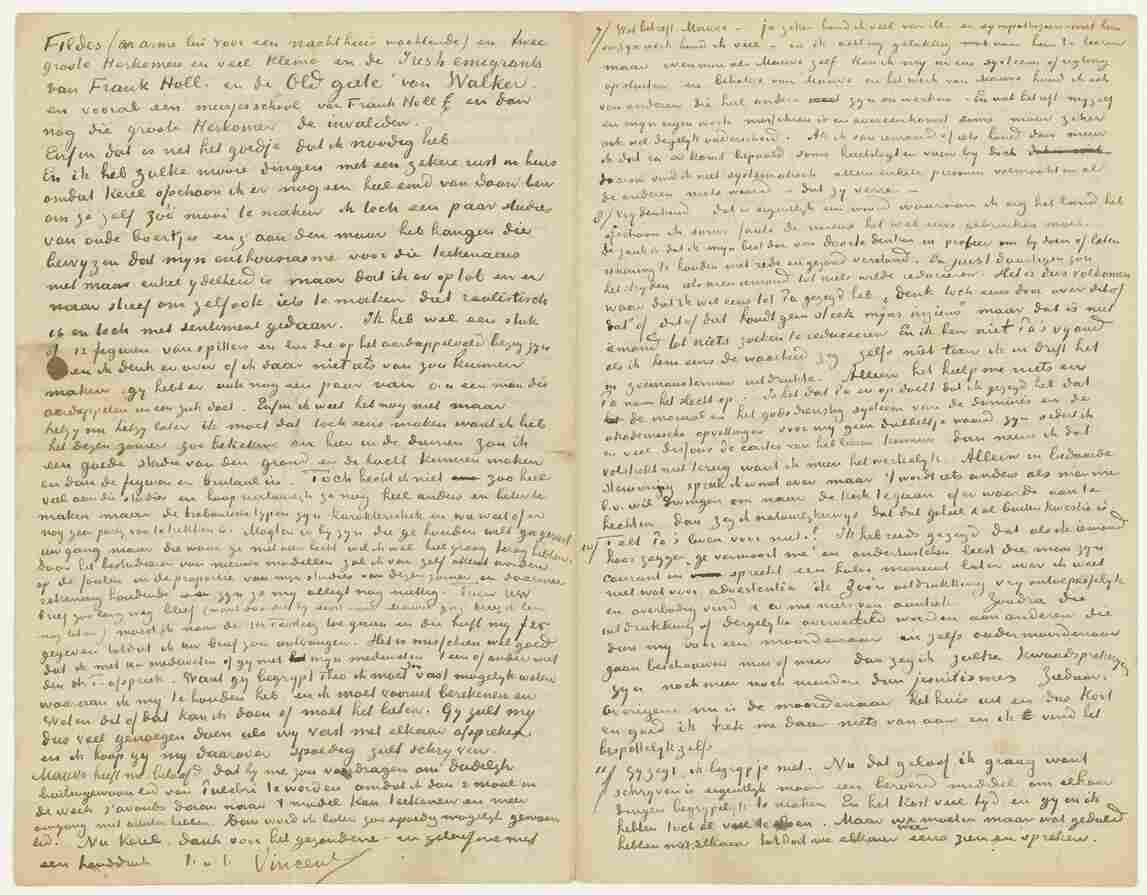 Fildes (arme lui voor een nachthuis wachtende) en twee
groote Herkomers en veel kleine en de Irish emigrants
van Frank Holl. en de Old gate van Walker.
en vooral een meisjesschool van Frank Holl & en dan
nog die groote Herkomer de invaliden.
Enfin dat is net het goedje dat ik noodig heb.
En ik heb zulke mooie dingen met een zekere rust in huis
omdat kerel ofschoon ik er nog een heel eind van daan ben
om ze zelf zoo mooi te maken ik toch een paar studies
van oude boertjes enz aan den muur heb hangen die
bewyzen dat myn enthousiasme voor die teekenaars
niet maar enkel ydelheid is maar dat ik er op tob en er
naar streef om zelf ook iets te maken dat realistisch
is en toch met sentiment gedaan. Ik heb wel een stuk
of 12 figuren van spitters en lui die op het aardappelveld bezig zyn
en ik denk er over of ik daar niet iets van zou kunnen
maken. gy hebt er ook nog een paar van o.a een man die
aardappelen in een zak doet. Enfin ik weet het nog niet maar
hetzy nu hetzy later ik moet dat toch eens maken want ik heb
het dezen zomer zoo bekeken en hier in de duinen zou ik
een goede studie van den grond en de lucht kunnen maken
en dan de figuren er brutaal in. Toch hecht ik niet zoo heel
veel aan die studies en hoop natuurlyk ze nog heel anders en beter te
maken maar de brabantsche typen zyn karakteristiek en wie weet of er
nog geen party van te trekken is. Mogten er by zyn die ge houden wilt ga gerust
uw gang maar die waar ge niet aan hecht wil ik wel heel graag terug hebben.
door het bestudeeren van nieuwe modellen zal ik van zelf attent worden
op de fouten in de proportie van myn studies van dezen zomer en daarmee
rekening houdende zyn ze my allegt nog nuttig. Toen uw
brief zoo lang weg bleef
nog later) moest ik naar de Hr Tersteeg toe gaan en die heeft my f 25.
gegeven totdat ik uw brief zou ontvangen. Het is misschien wel goed
dat ik met uw medeweten of gy met myn medeweten 't een of ander met
den Hr T. afspreek. Want gy begrypt Theo ik moet zoo vast mogelyk weten
waar aan ik my te houden heb en ik moet vooruit berekenen en
weten dit of dat kan ik doen of moet het laten. Gy zult my
dus veel genoegen doen als wy vast met elkaar afspreken
en ik hoop gy my daarover spoedig zult schryven.
Mauve heeft me beloofd dat hy me zou voordragen om dadelyk
buitengewoon lid van Pulchri te worden omdat ik dan 2 maal in
de week s'avonds daar naar 't model kan teekenen en meer
omgang met schilders hebben. Dan word ik later zoo spoedig mogelyk gewoon
lid. Nu kerel, dank voor het gezondene en geloof me met
een handdruk t. à t. Vincent
7/ Wat betreft Mauve - ja zeker houd ik veel van M. en sympathiseer met hem
van zyn werk houd ik veel - en ik acht my gelukkig van hem te leeren
maar evenmin als Mauve zelf kan ik my in een systeem of rigting
opsluiten en behalve van Mauve en het werk van Mauve houd ik ook
van anderen die heel anders zyn en werken. En wat betreft myzelf
en myn eigen werk misschien is er overeenkomst soms maar zeker
ook wel degelyk onderscheid. Als ik van iemand of iets houd dan meen
ik dat en er komt bepaald soms hartstogt en vuur by doch
daarom vind ik niet systematisch alleen enkele personen volmaakt en al
de anderen niets waard - dat zy verre. -
8/ Vrydenkend dat is eigenlyk een woord waaraan ik erg het land heb
ofschoon ik my faute de mieux het wel eens gebruiken moet.
De zaak is dat ik myn best doe van door te denken en probeer om by doen of laten
rekening te houden met rede en gezond verstand. En juist daartegen zou
het stryden als men iemand tot niets wilde reduceeren. Het is dus volkomen
waar dat ik wel eens tot Pa gezegd heb "denk toch eens door over dit of
dat" of dit of dat houdt geen steek myns inziens" maar dat is niet
iemand tot niets zoeken te reduceeren. En ik ben niet Pa's vyand
als ik hem eens de waarheid zeg zelfs niet toen ik in drift het
in gezouten termen uitdrukte. Alleen het hielp me niets en
Pa nam het slecht op. Is het dat Pa er op doelt dat ik gezegd heb dat
de moraal en het godsdienstig systeem van de dominés en de
akademische opvattingen voor my geen dubbeltje waard zyn sedert ik
er veel dessous de cartes van heb leeren kennen dan neem ik dat
volstrekt niet terug want ik meen het werkelyk. Alleen in bedaarde
stemming spreek ik er niet over maar 't wordt iets anders als men me
b.v. wil dwingen om naar de kerk te gaan of er waarde aan te
hechten dan zeg ik natuurlykerwys dat dat geheel & al buiten kwestie is
10/ Telt Pa's leven voor niets? Ik heb reeds gezegd dat als ik iemand
hoor zeggen "ge vermoort me" en ondertusschen leest die man zyn
courant en spreekt een halve minuut later over ik weet
niet wat voor advertentie ik zoo'n uitdrukking vry ontoepasselyk
en overbodig vind & er me niets van aantrek. Zoodra die
uitdrukking of dergelyke overwerkeld worden aan anderen die
dan my voor een moordenaar en zelfs oudermoordenaar
gaan beschouwen min of meer dan zeg ik zulke kwaadsprekeryen
zyn noch meer noch minder dan jesuitismes. Ziedaar.
Overigens nu is de moordenaar het huis uit en dus kort
en goed ik trek me daar niets van aan en ik vind het
bespottelyk zelfs
11/ Gy zegt, ik begryp je niet. Nu dat geloof ik graag want
schryven is eigenlyk maar een beroerd middel om elkaar
dingen begrypelyk te maken. En het kost veel tyd en gy en ik
hebben toch al veel te doen. Maar we moeten maar wat geduld
hebben met elkaar totdat we elkaar weer eens zien en spreken.